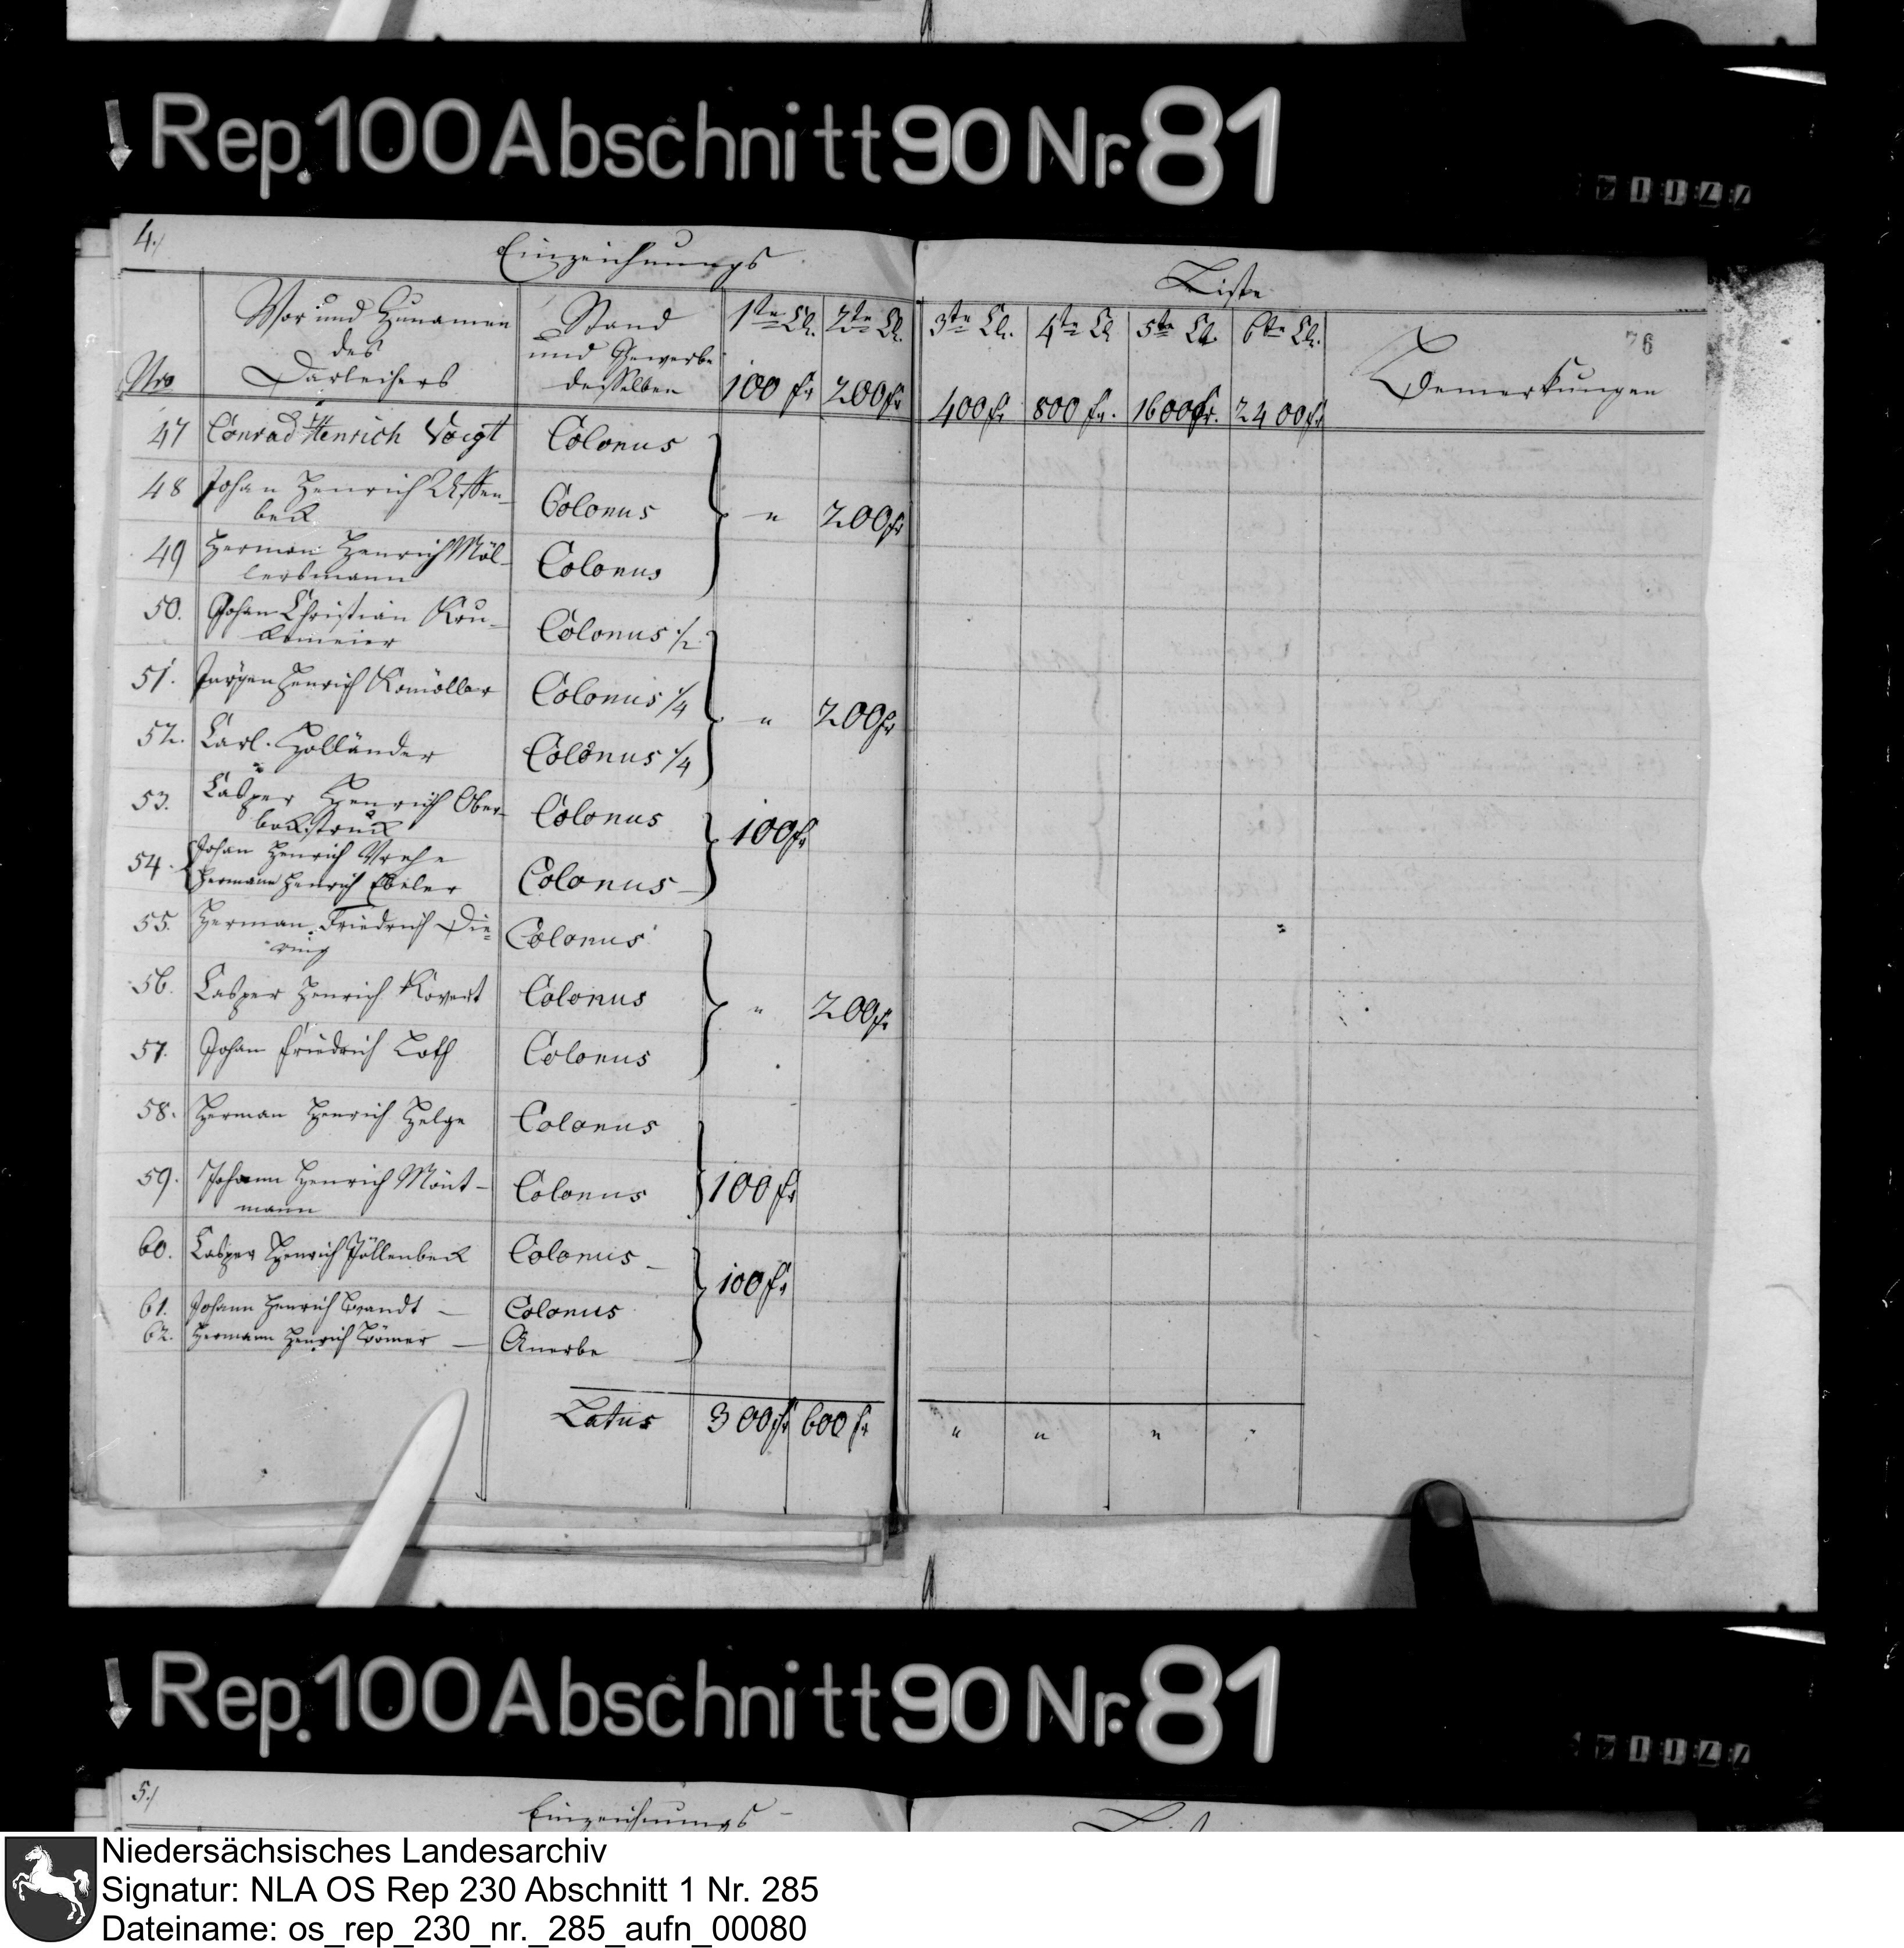 Rep. 100 Abschnitt 90 Nr. 81
4./
Einzeichnungs
Liste
76
Nro
Vor und Zunamen
des
Darleihers
Stand
und Gewerbe
desselben
1ste Cl.
100 fr
2te Cl.
200 fr
3te Cl.
400 fr
4te Cl
800 fr.
5te Cl.
1600 fr.
6te Cl.
2400 fr
Bemerkungen
47 Conrad Henrich Voigt Colonus
48 Johan Henrich Assen-
beck Colonus " 200 fr
49 Herman Henrich Möl-
lersmann Colonus
50. Johan Christian Kru-
kemeier Colonus 1/2
51. Jürgen Henrich Komöller Colonus 1/4 " 200 fr
52. Carl Holländer Colonus 1/4
53. Casper Henrich Ober-
bockstruck Colonus 100 fr
54. Johan Henrich
Hermann Henrich Ebeler Colonus
55. Herman Friedrich Die=
ring Colonus
56. Casper Henrich Kovert Colonus " 200 fr
57. Johan Friedrich Loth Colonus
58. Herman Henrich Helge Colonus
59. Johann Henrich Mönt-
mann Colonus 100 fr
60. Casper Henrich Pöllenbeck Colonus
100 fr
61. Johann Henrich Brandt Colonus
62. Hermann Henrich Brömer Anerbe
Latus 300 fr 600 fr " " " "
Rep. 100 Abschnitt 90 Nr. 81
5./
Einzeichnungs-
Niedersächsisches Landesarchiv
Signatur: NLA OS Rep 230 Abschnitt 1 Nr. 285
Dateiname: os_rep_230_nr._285_aufn_00080